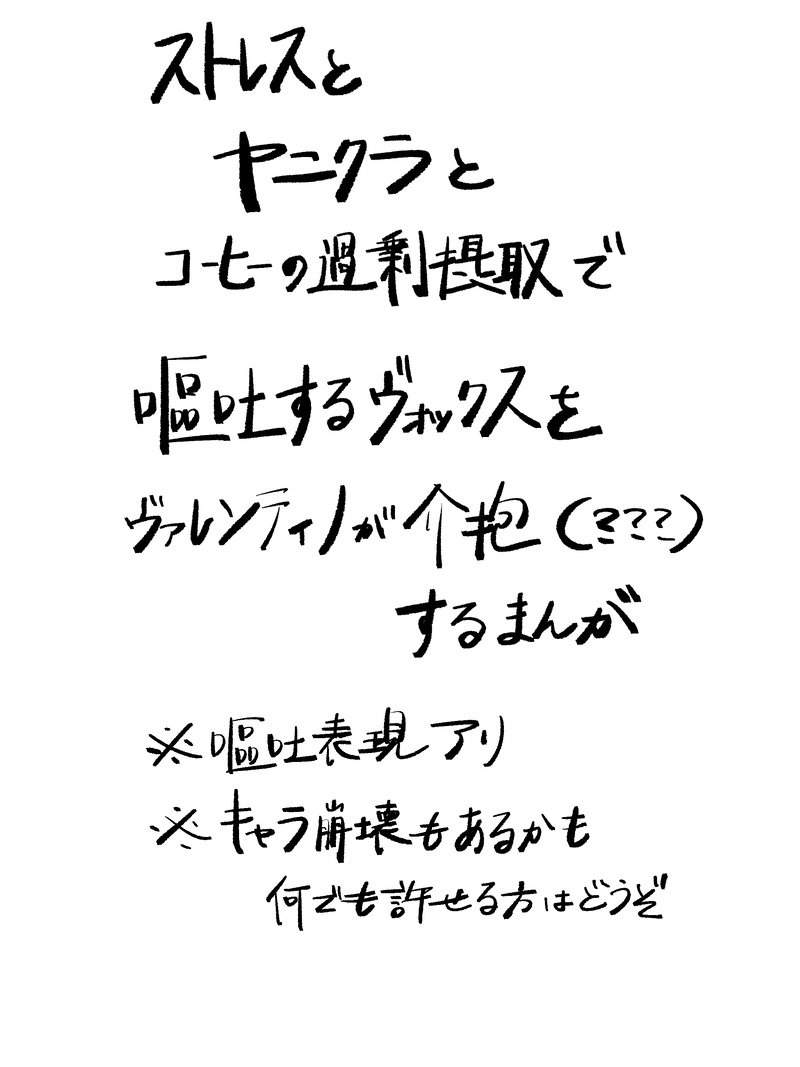 ストレスと
ヤニクラと
コーヒーの過剰摂取で
嘔吐するヴォックスを
ヴァレンティノが介抱(???)
するまんが
※嘔吐表現アリ
※キャラ崩壊もあるかも
何でも許せる方はどうぞ